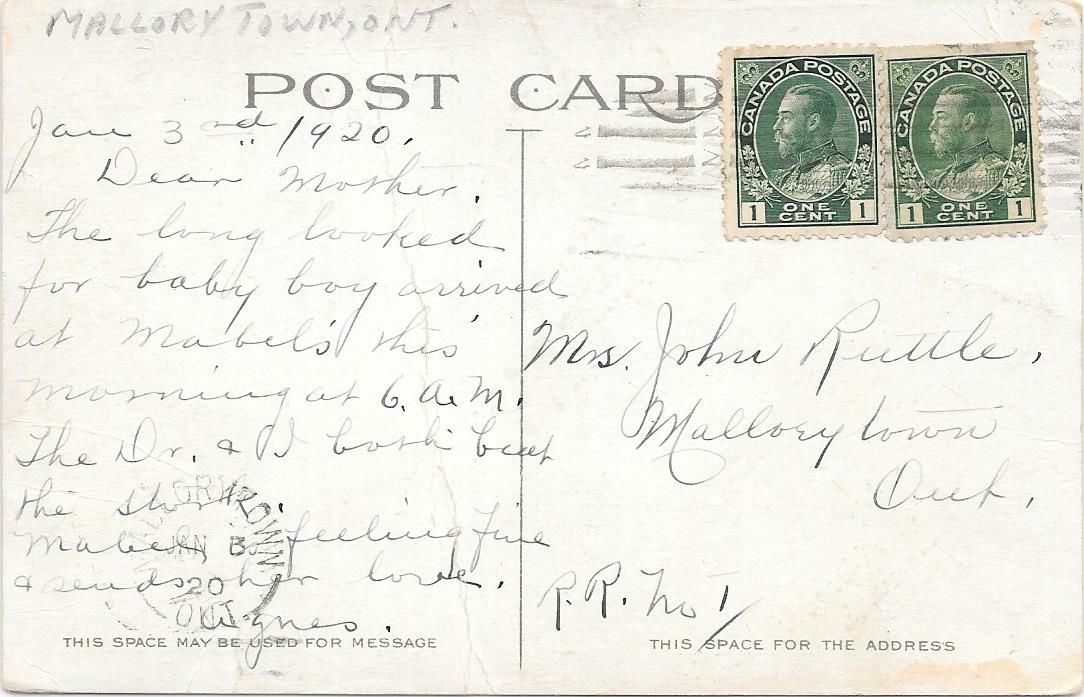 MALLORY TOWN, ONT.
POST CARD
CANADA POSTAGE
1 ONE CENT 1
CANADA POSTAGE
1 ONE CENT 1
Jan 3rd 1920.
Dear Mother.
The long looked
for baby boy arrived
at Mabel's this
morning at 6. A.M.
The Dr. & I both beat
the stork.
Mabel is feeling fine
& sends her love.
Agnes.
MALLORYTOWN
JAN 3
20
ONT
THIS SPACE MAY BE USED FOR MESSAGE
Mrs. John Ruttle,
Mallorytown
Ont,
R.R. No 1
THIS SPACE FOR THE ADDRESS